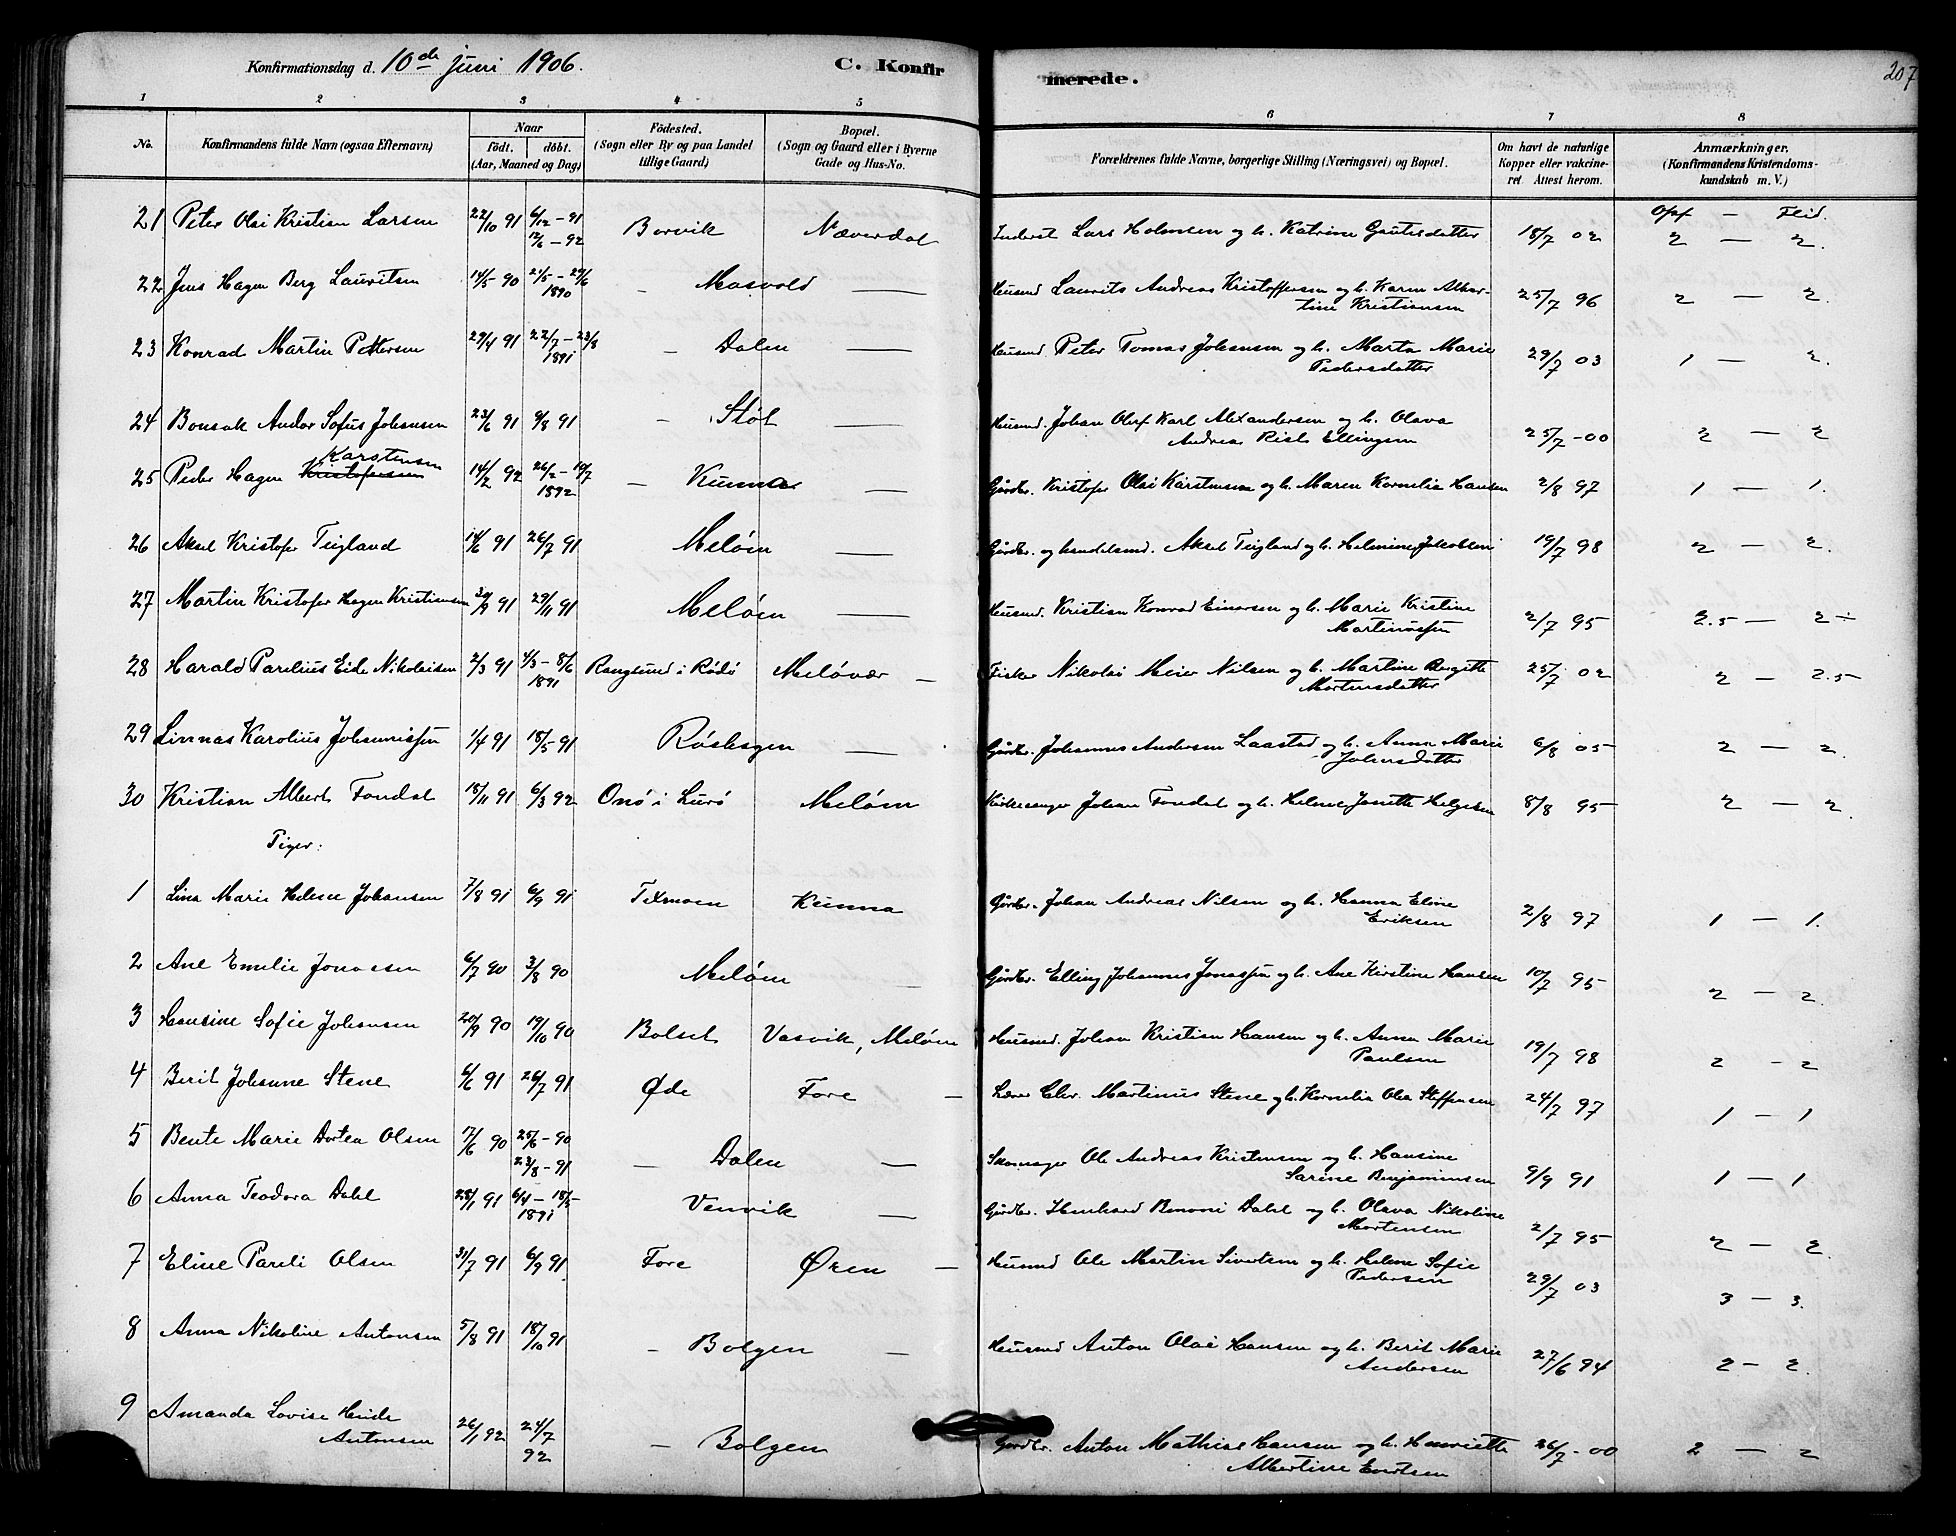 207
Konfirmationsdag d. 10de juni 1906.
C. Konfirmerede.
1 2 3 4 5 6 7 8
No. Konfirmandens fulde Navn (ogsaa Efternavn) Naar födt. döbt. (Aar, Maaned og Dag) Födested. (Sogn eller By og paa Landet tillige Gaard) Bopæl. (Sogn og Gaard eller i Byerne Gade og Hus-No. Forældrenes fulde Navne, borgerlige Stilling (Næringsvei) og Bopæl. Om havt de naturlige Kopper eller vakcineret. Attest herom. Anmærkninger. (Konfirmandens Kristendomskundskab m. V.)
Flid.
21 Peter Olai Kristian Larsen 22/10 91 6/12 – 91 Borvik Næverdal Inderst Lars Holmsen og h. Katrine Gautesdatter 18/7 02 2 — 2.
12/6 – 92
22 Jens Hagen Berg Lauritsen 14/5 90 – Mosvold — Husmd Laurits Andreas Kristoffersen og h. Karen Albertine Kristiansen 25/7 96 2 — 2.
1890
23 Konrad Martin Pettersen 29/4 91 22/7 – 23/8 – Dalen — Husmd Peter Tomas Johansen og h. Marta Marie Pedersdatter 29/7 03 1 — 2.
1891
24 Bonsak Andor Sofus Johansen 23/6 91 9/8 91 – Støt — Husmd. Johan Oluf Karl Alexandersen og h. Olava Andrea Ellingsen 25/7 -00 2 — 2
25 Peder Hagen Kristofersen Karstensen 14/2 92 26/2 – 19/7 – Kunna — Gårdbr. Kristofer Olai Karstensen og h. Maren Kornelia Hansen 2/8 97 1 — 1.
1892
26 Aksel Kristofer Teigland 14/6 91 26/7 91 Meløen — Gårdbr. og handelsmd. Aksel Teigland og h. Helmine Jakobsen 19/7 98 2 — 2.
27 Martin Kristofer Hagen Kristiansen 30/9 91 29/11 91 Meløen — Husmd. Kristian Konrad Einarsen og h. Marie Kristine Martinussen 2/7 95 2.5 — 2 ÷
28 Harald Parelius Eide Nikolaisen 2/3 91 4/3 – 8/6 Rangsund i Rödö Meløvær – Fisker Nikolai Meier Nilsen og h. Martine Bergitte Mortensdatter 25/7 02 2 — 2.5
1891
29 Linnas Karolius Johannissen 1/4 91 18/5 91 Røshagen — Gårdbr. Johannes Andersen Laastad og h. Anna Marie Johnsdatter 6/8 05 2 — 2.
30 Kristian Albert Fondal 18/11 91 6/3 92 Onö i Lurö Meløen Kirkesanger Johan Fondal og h. Helene Janette Helgesen 8/8 95 2 — 2.
Piger:
1 Lina Marie Helene Johansen 7/8 91 6/9 91 Texmoen Kunna Gårdbr. Johan Andreas Nilsen og h. Hanna Eline Eriksen 2/8 97 1 — 1.
2 Ane Emelie Jonassen 6/7 90 3/8 90 Meløen — Gårdbr. Elling Johannes Jonassen og h. Ane Kirstine Hansen 10/7 95 2 — 2.
3 Hansine Sofie Johansen 20/9 90 19/10 90 Bolset Vasvik, Meløen Husmd. Johan Kristian Hansen og h. Anna Marie Paulsen 19/7 98 2 – 2
4 Berit Johanne Stene 6/6 91 26/7 91 Øde Fore – Lærer Chr. Martinus Stene og h. Kornelia Olea Steffensen 24/7 97 1 — 1
5 Bente Marie Dortea Olsen 7/6 90 25/6 – 90 – Dalen — Skomager Ole Andreas Kristensen og h. Hansine Sarine Benjaminsen 9/9 91 1 — 1
23/8 – 91
6 Anna Teodora Dahl 28/1 91 6/4 – 18/5 Venvik — Gårdbr. Henhard Benoni Dahl og h. Olava Nikoline Mortensen 2/7 95 2 — 2.
1891
7 Eline Pareli Olsen 31/7 91 6/9 91 Fore Øren – Husmd Ole Martin Sivertsen og h. Helene Sofie Pedersen 29/7 03 3 — 3.
8 Anna Nikoline Antonsen 5/8 91 18/10 91 – Bolgen — Husmd Anton Olai Hansen og h. Berit Marie Andersen 27/6 94 2 – 2.
9 Amanda Lovise Antonsen 26/1 92 24/7 92 – Bolgen Gårdbr. Anton Mathias Hansen og h. Henriette Albertine 26/7 -00 2 — 2